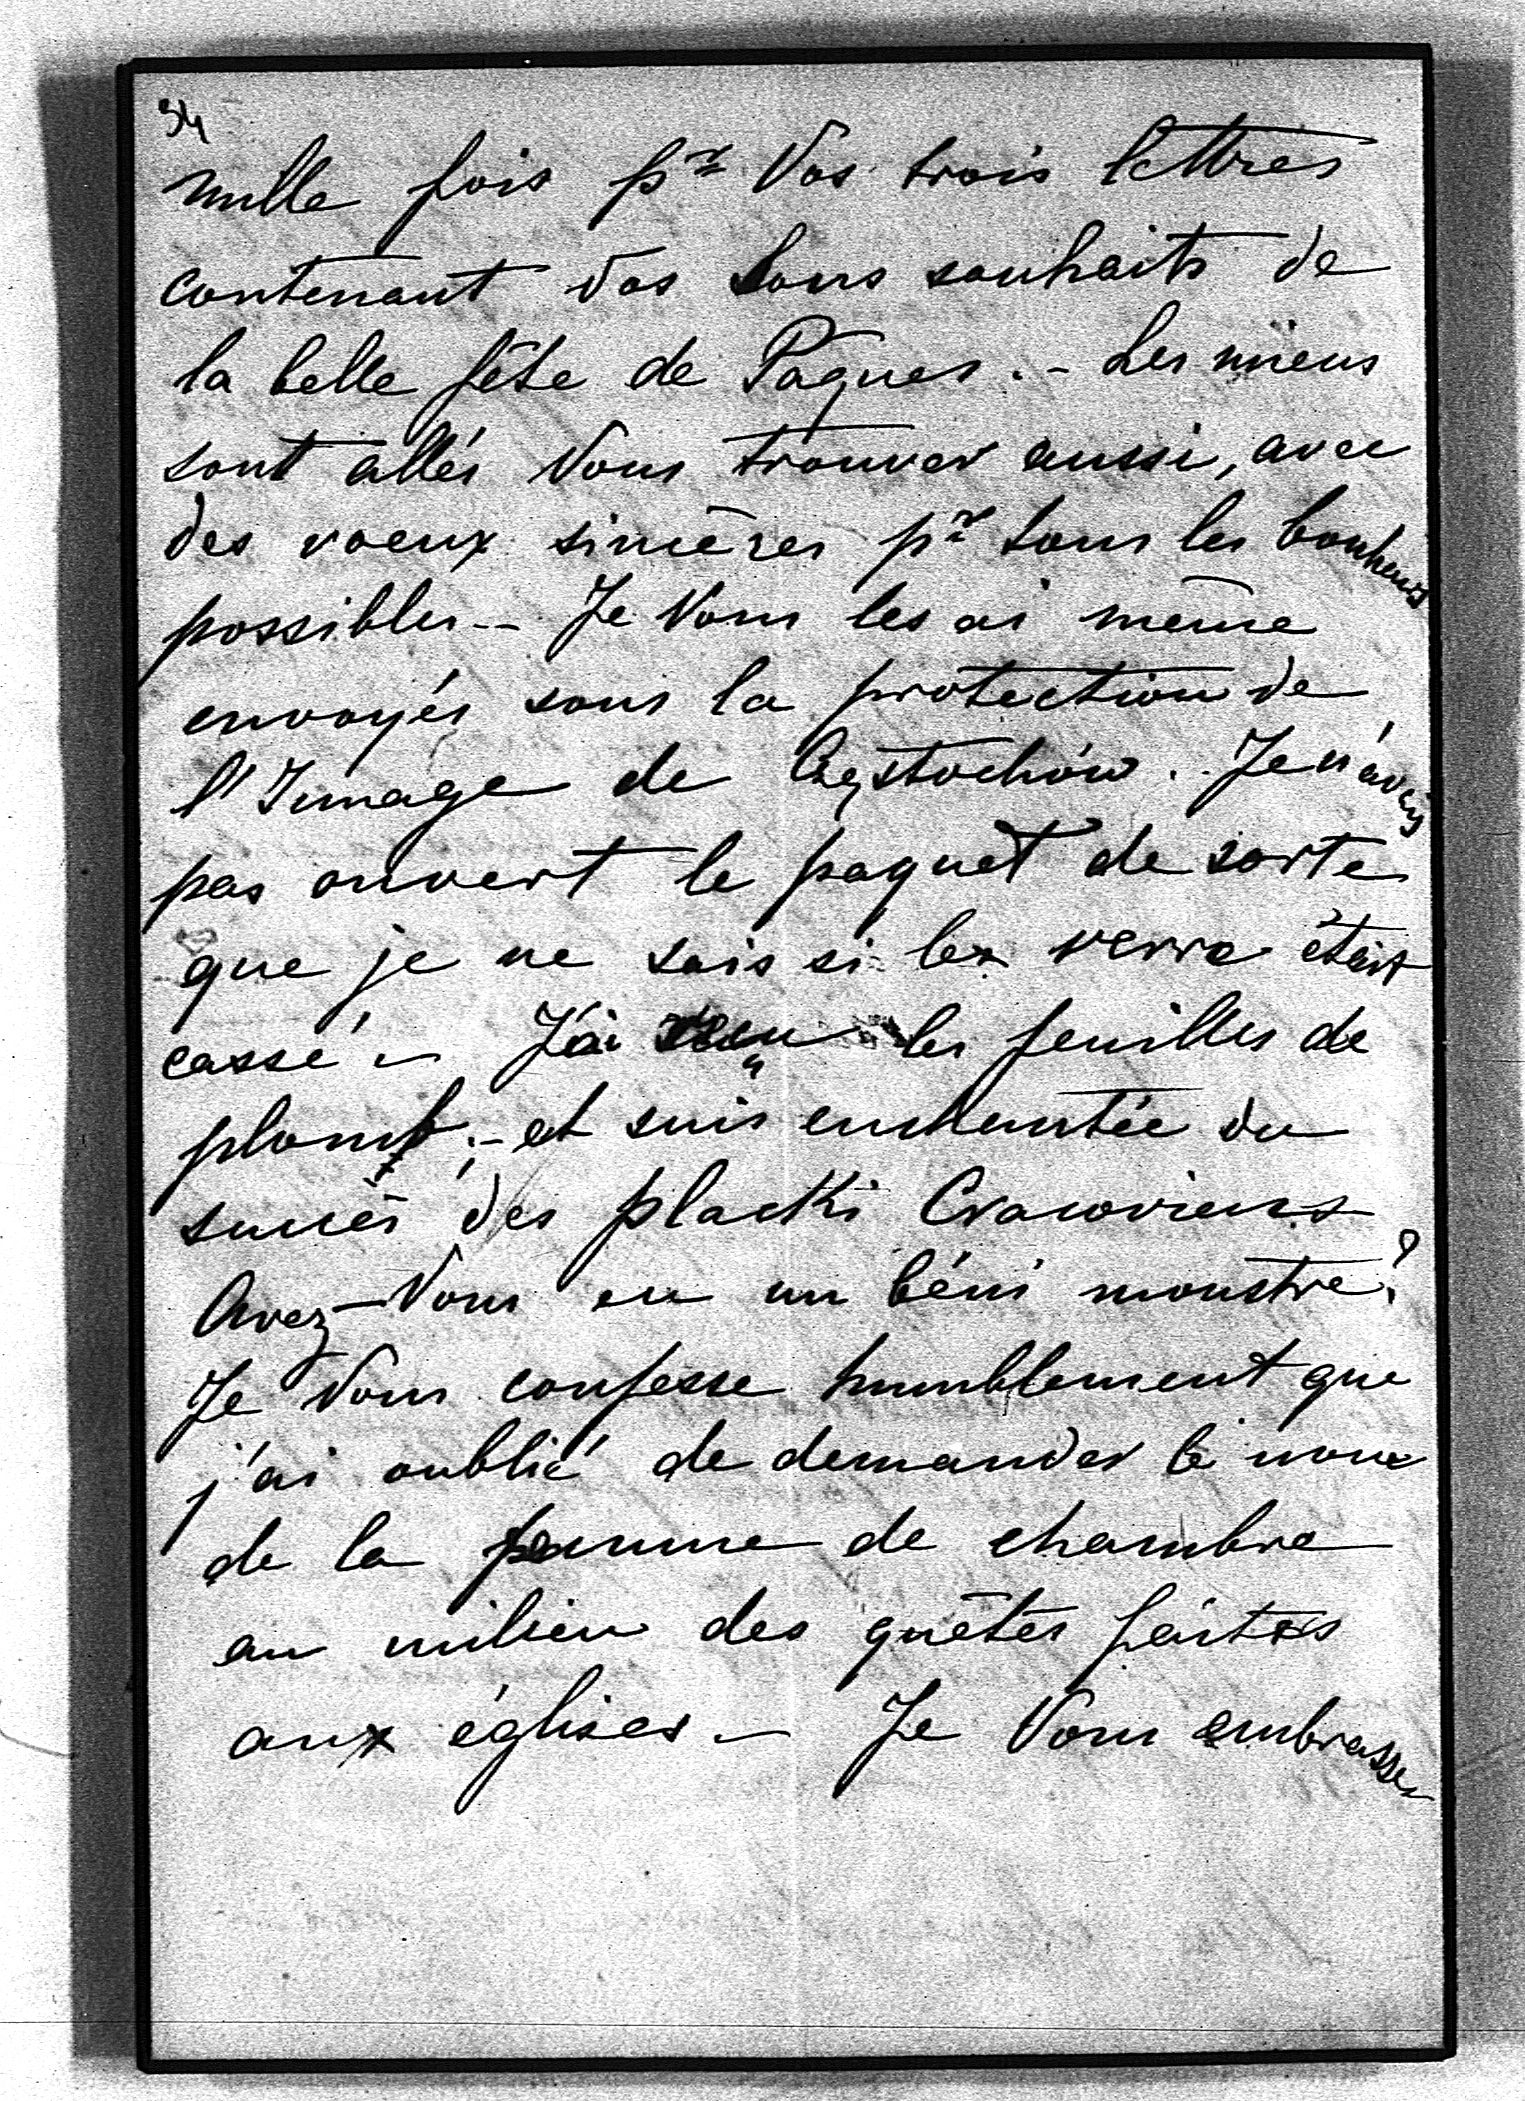 34
mille fois pr Vos trois lettres
contenant Vos bons souhaits de
la belle fête de Pâques. - Les miens
sont allés Vous trouver aussi, avec
des voeux sincères pr tous les bonheurs
possibles -- Je Vous les ai même
envoyés sous la protection de
l'Image de Częstochów. Je n'avais
pas ouvert le paquet de sorte
que je ne sais si le verre était
cassé - J'ai reçu les feuilles de
plomb; - et suis enchantée du
succès des placki Cracoviens
Avez-Vous eu un béni monstre?
Je Vous confesse humblement que
j'ai oublié de demander le nom
de la femme de chambre
au milieu des quêtes faites
aux églises - Je Vous embrasse